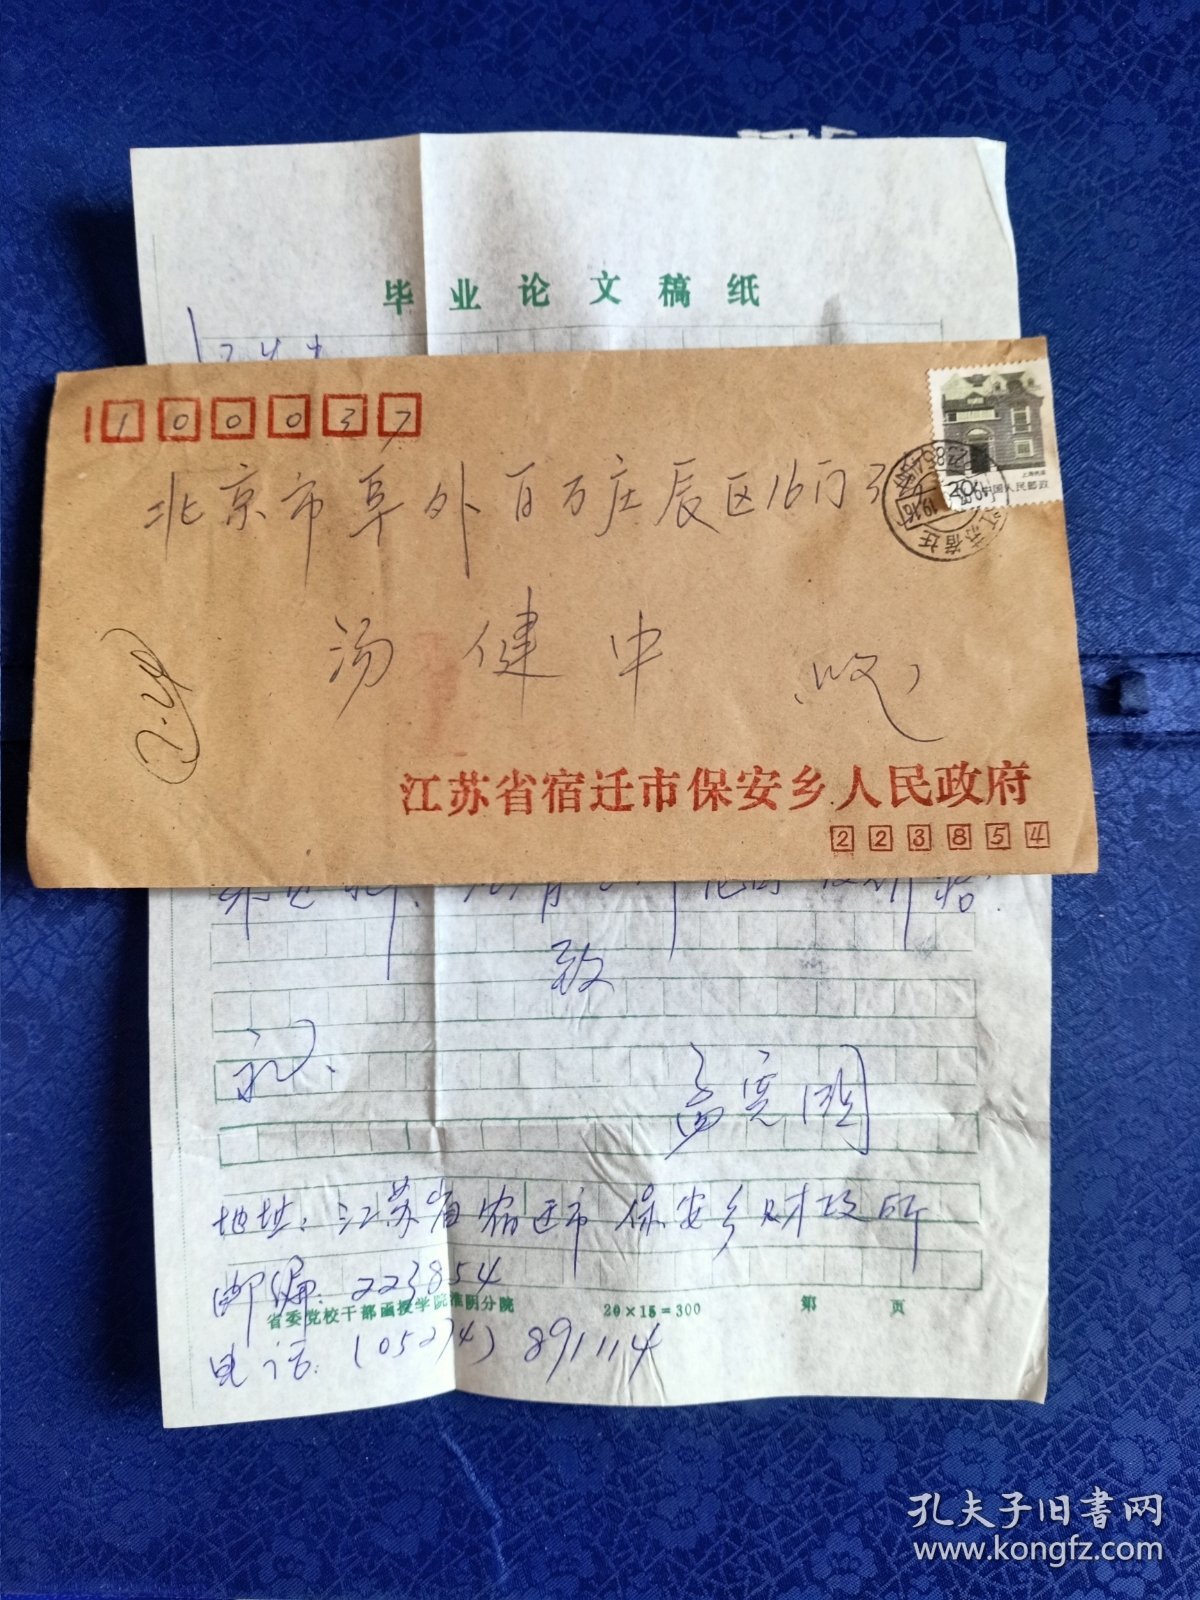 毕业论文稿纸
100037
北京市阜外百万庄辰区16门3
汤健中
(收)
上海民居
20
中国人民邮政
江苏宿迁
江苏省宿迁市保安乡人民政府
223854
致
礼、
孟宪明
地址:江苏省宿迁市保安乡财政所
邮编:223854
省委党校干部函授学院淮阴分院 20×15=300 第 页
电话:(05274)891114
孔夫子旧书网
www.kongfz.com